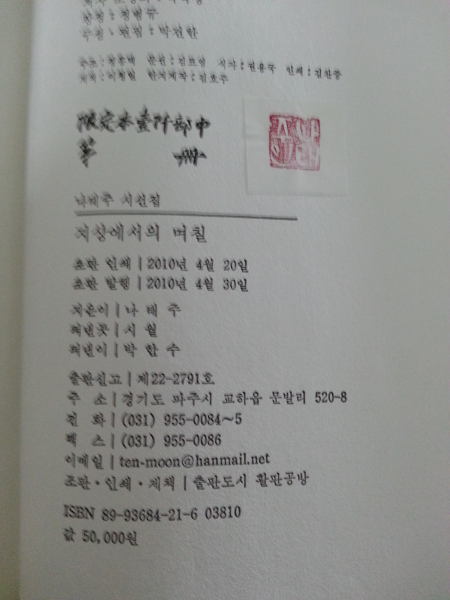 공정 : 정민규
수정 · 편집 : 박건한
限定本壹阡部中
第 冊
나태주 시선집
지상에서의 며칠
초판 인쇄 | 2010년 4월 20일
초판 발행 | 2010년 4월 30일
지은이 | 나 태 주
펴낸곳 | 시 월
펴낸이 | 박 한 수
출판신고 | 제22-2791호
주 소 | 경기도 파주시 교하읍 문발리 520-8
전 화 | (031) 955-0084~5
팩 스 | (031) 955-0086
이메일 | ten-moon@hanmail.net
조판 · 인쇄 · 제책 | 출판도시 활판공방
ISBN 89-93684-21-6 03810
값 50,000원